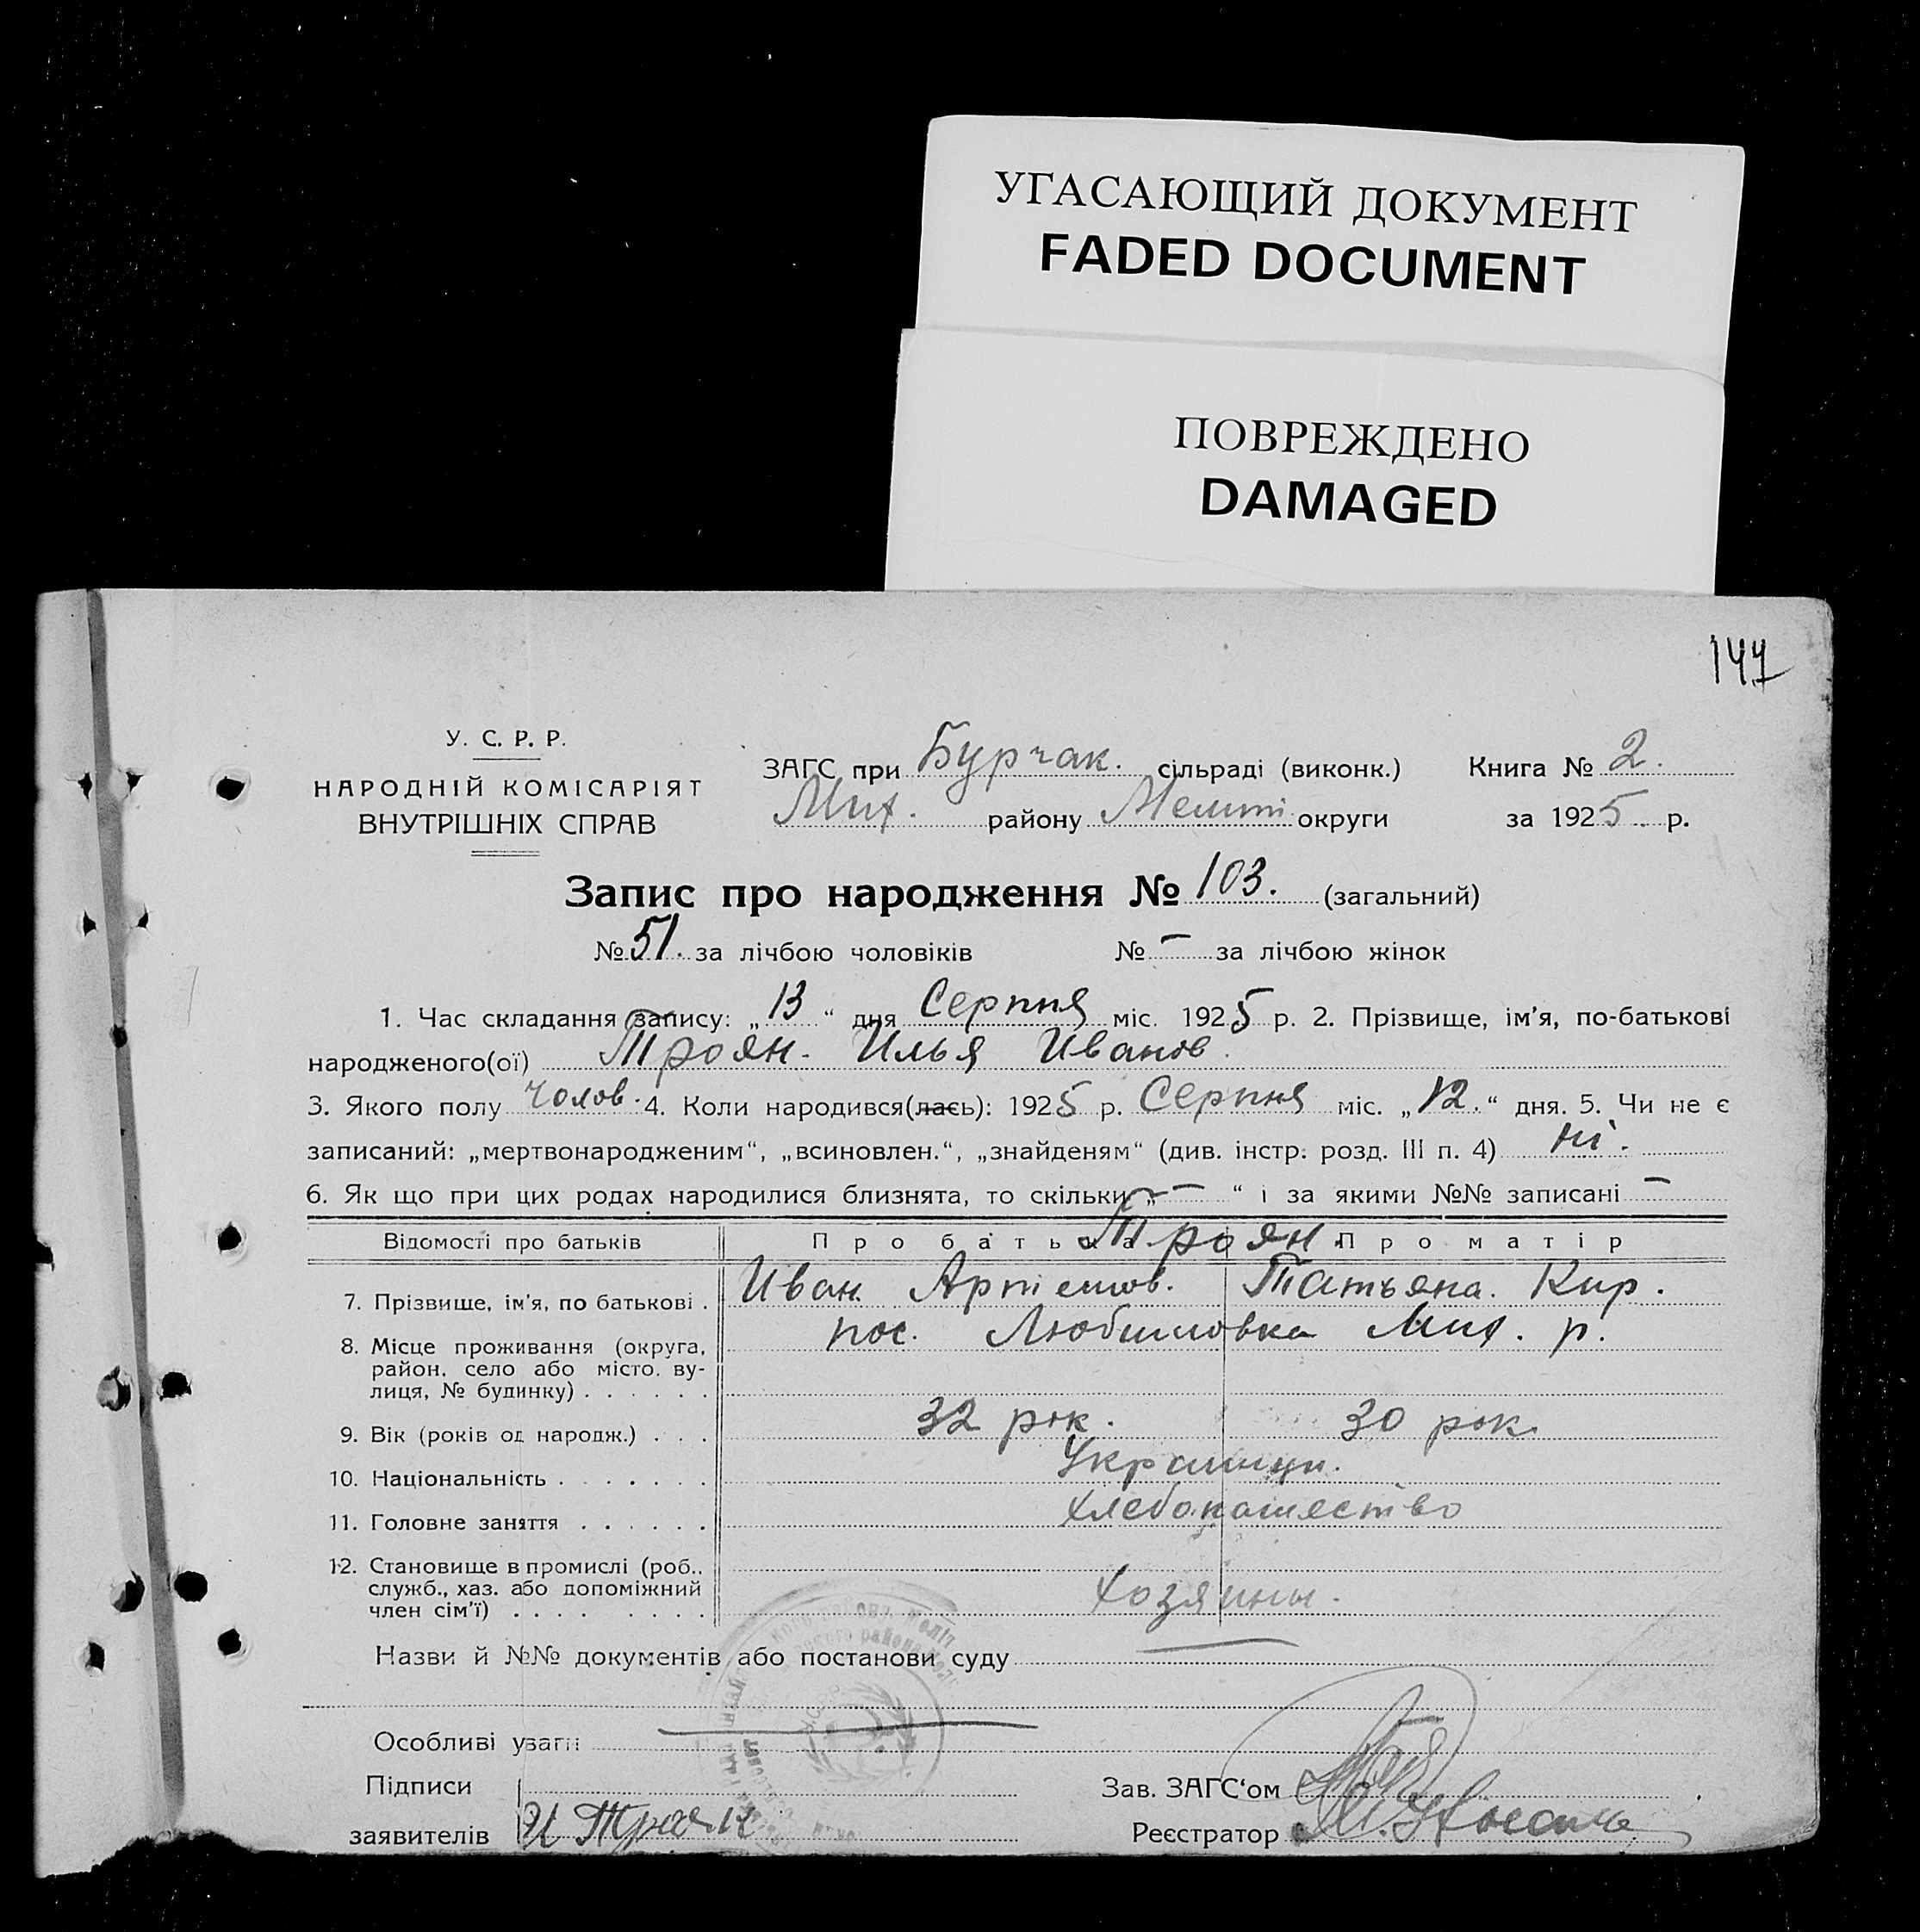 УГАСАЮЩИЙ ДОКУМЕНТ
FADED DOCUMENT
ПОВРЕЖДЕНО
DAMAGED
147
У. С. Р. Р.
НАРОДНІЙ КОМІСАРІЯТ
ВНУТРІШНІХ СПРАВ
ЗАГС при Бурчак. сільраді (виконк.) Книга № 2.
Мих. району Меліт округи за 1925 р.
Запис про народження № 103. (загальний)
№ 51. за лічбою чоловіків № — за лічбою жінок
1. Час складання запису: „13“ дня Серпня міс. 1925 р. 2. Прізвище, ім'я, по-батькові
народженого(ої) Троян. Илья Иванов.
3. Якого полу чолов. 4. Коли народився(лась): 1925 р. Серпня міс. „12.“ дня. 5. Чи не є
записаний: „мертвонародженим“, „всиновлен.“, „знайденям“ (див. інстр. розд. III п. 4) ні.
6. Як що при цих родах народилися близнята, то скільки „—“ і за якими №№ записані —
Відомості про батьків Про батька Троян. Про матір
7. Прізвище, ім'я, по батькові . Иван Артемов. Татьяна. Кир.
8. Місце проживання (округа, пос. Любимовка Мих. р.
район, село або місто, ву-
лиця, № будинку) . . . . . .
9. Вік (років од народж.) . . . 32 рок. 30 рок.
10. Національність . . . . . . Украинци.
11. Головне заняття . . . . . . хлебопашество
12. Становище в промислі (роб.,
служб., хаз. або допоміжний
член сім'ї) . . . . . . . . . хозяины.
Назви й №№ документів або постанови суду
Особливі уваги
Підписи Зав. ЗАГС'ом
заявителів И Троян Реєстратор